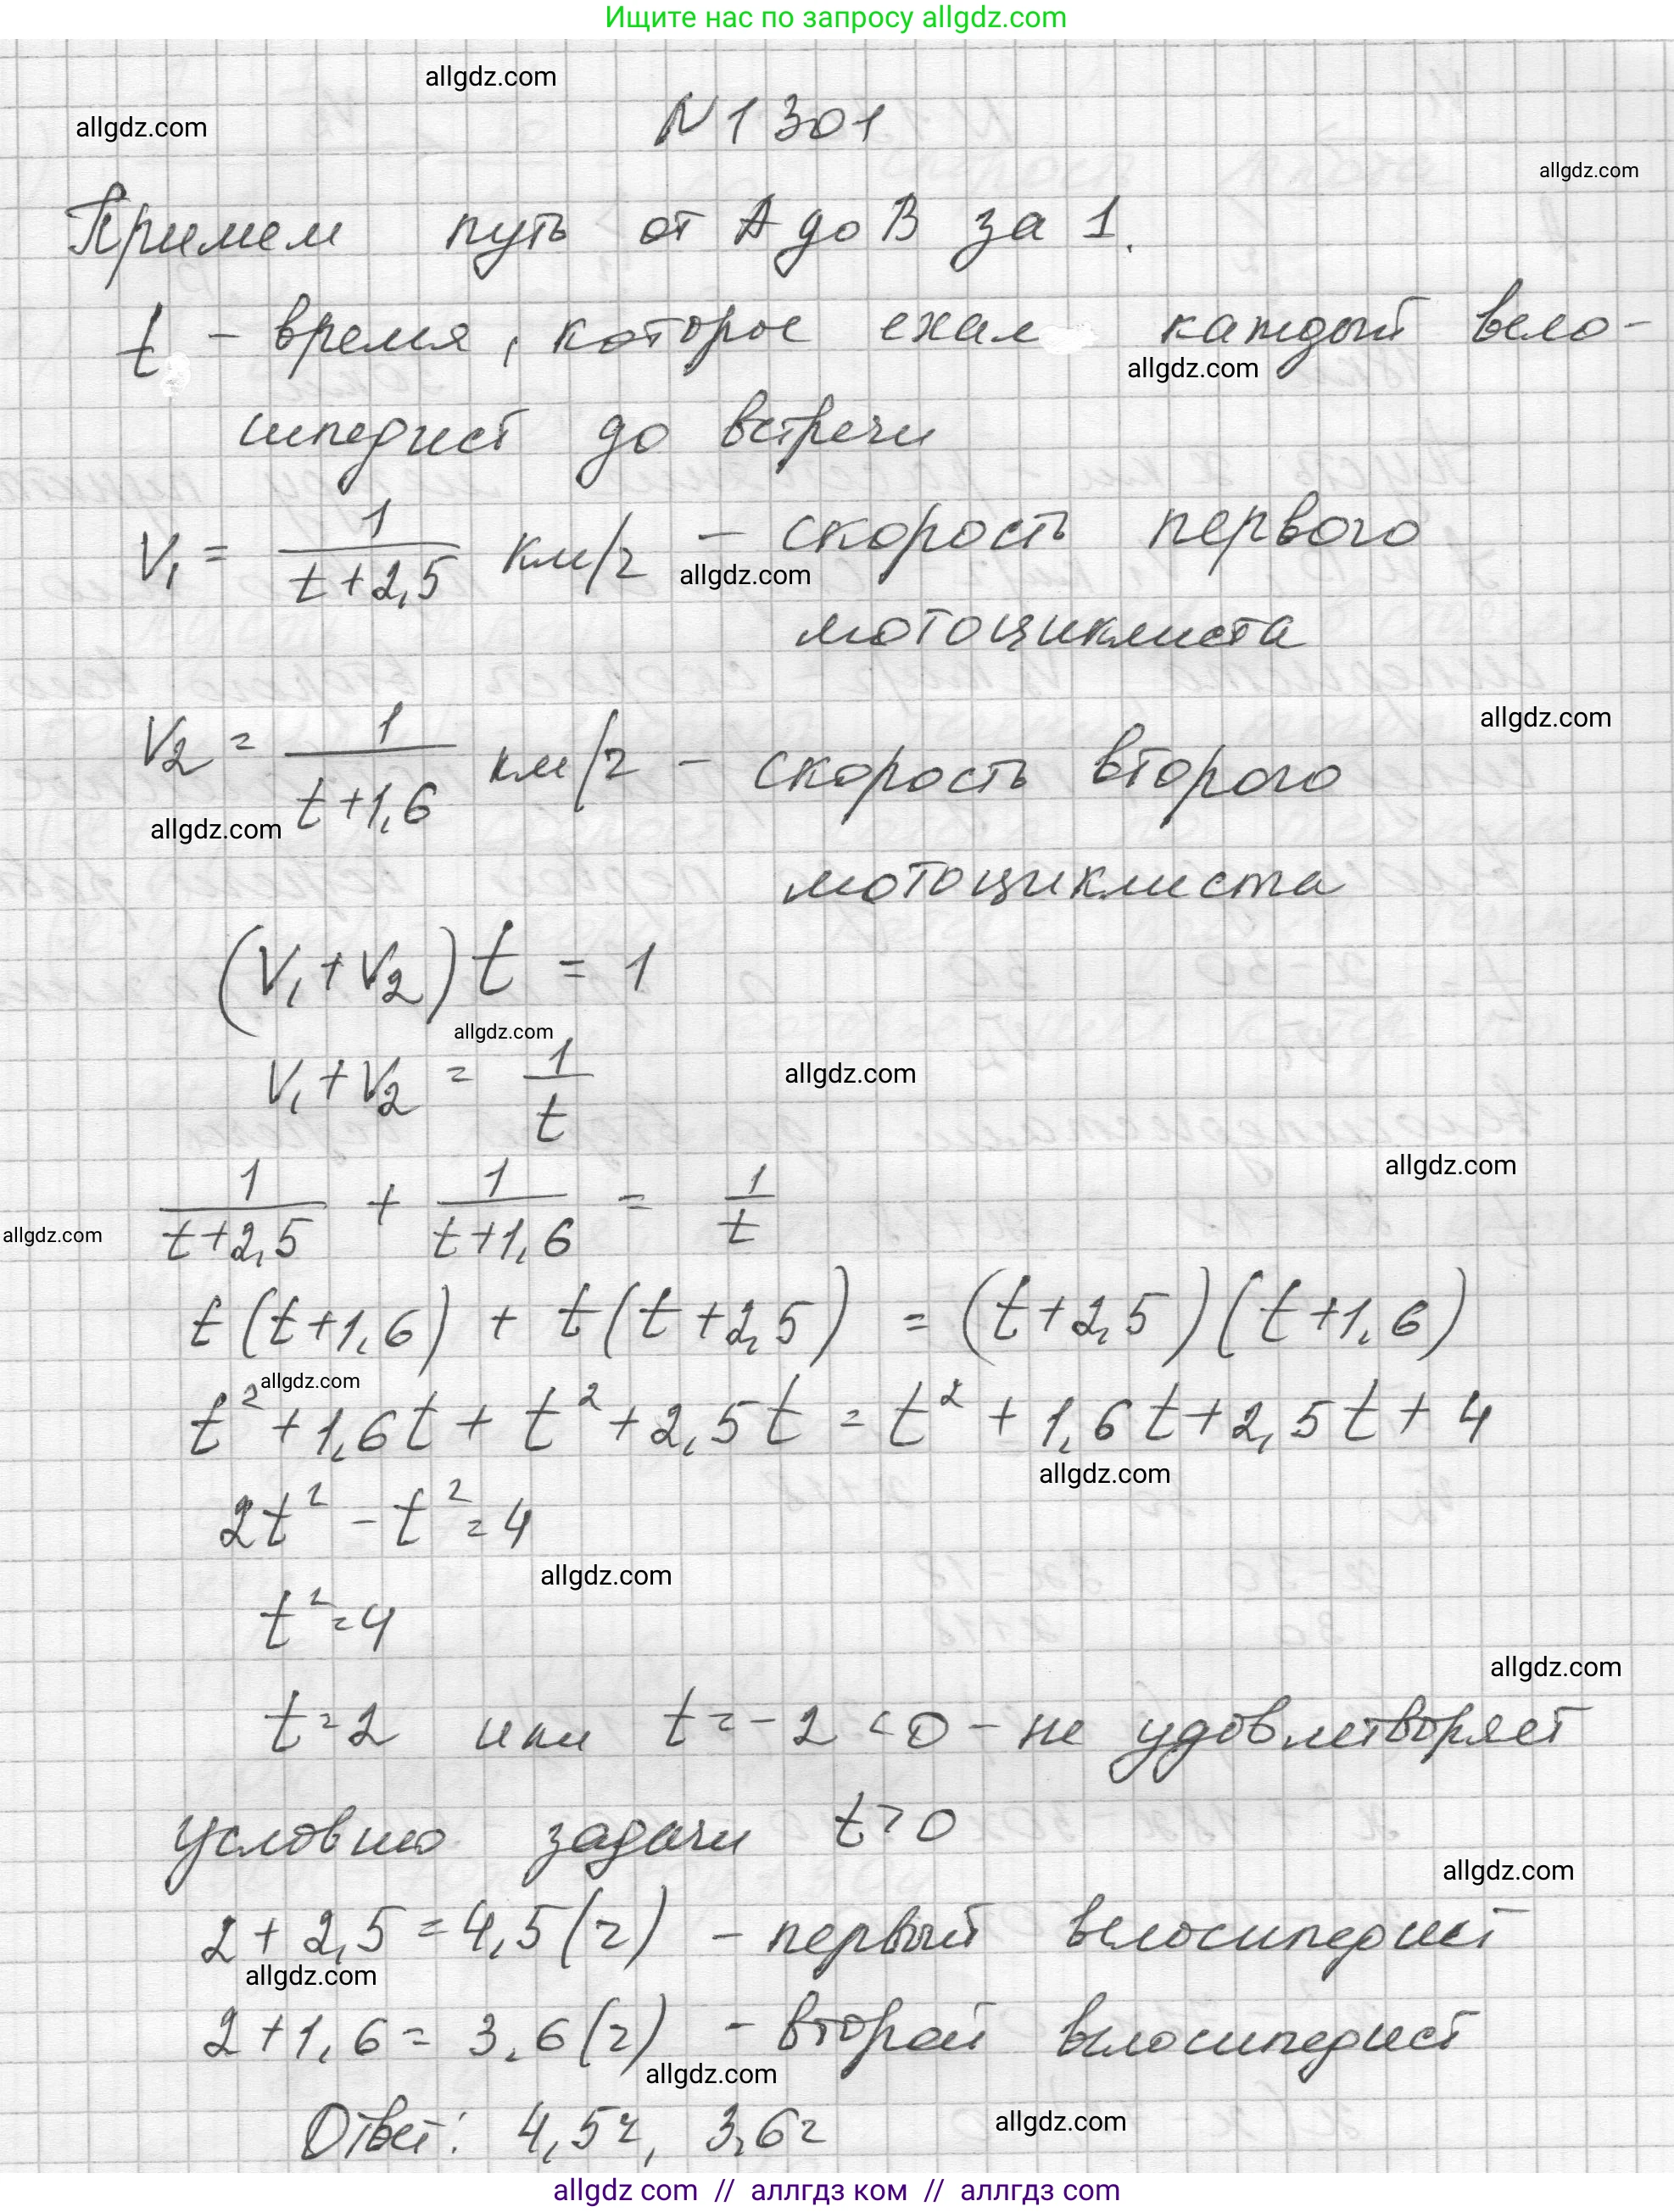 Ищите нас по запросу allgdz.com
allgdz.com
allgdz.com
N 1301
allgdz.com
Примем путь от A до B за 1.
t - время, которое ехал каждый вело-
allgdz.com
сипедист до встречи
V₁ = 1/(t+2,5) км/ч - скорость первого
allgdz.com
мотоциклиста
allgdz.com
V₂ = 1/(t+1,6) км/ч - скорость второго
allgdz.com
мотоциклиста
(V₁+V₂)t = 1
allgdz.com
V₁+V₂ = 1/t
allgdz.com
allgdz.com
1/(t+2,5) + 1/(t+1,6) = 1/t
allgdz.com
t(t+1,6) + t(t+2,5) = (t+2,5)(t+1,6)
allgdz.com
t²+1,6t+t²+2,5t=t²+1,6t+2,5t+4
allgdz.com
2t²-t²=4
allgdz.com
t²=4
allgdz.com
t=2 или t=-2<0 - не удовлетворяет
условию задачи t>0
allgdz.com
2+2,5=4,5(ч) - первый велосипедист
allgdz.com
2+1,6=3,6(ч) - второй велосипедист
allgdz.com
allgdz.com
Ответ: 4,5ч, 3,6ч
allgdz com // аллгдз ком // аллгдз com